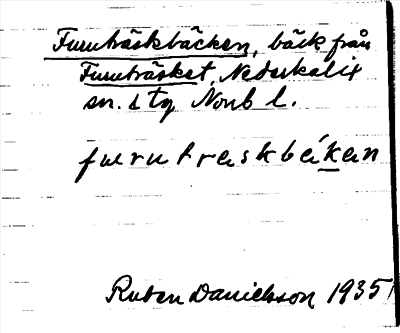 Furuträskbäcken, bäck från
Furuträsket, Nederkalix
sn. & tg Norrb l.
furutraskbákan
Ruben Danielsson 1935